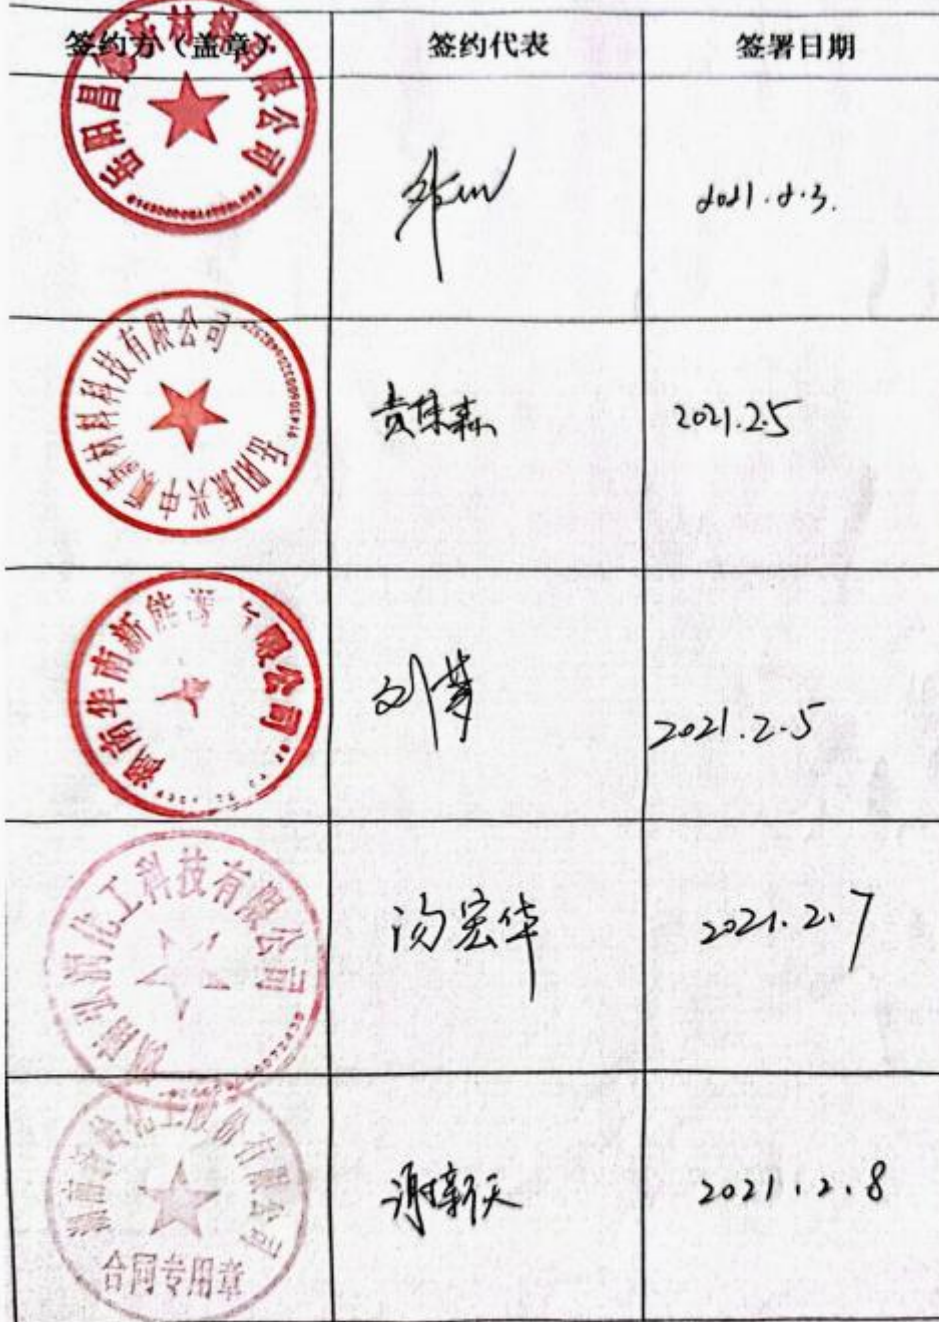 签约方（盖章） 签约代表 签署日期
岳阳昌德新材料有限公司
2021.2.3.
岳阳振兴中顺新材料科技有限公司
黄集森 2021.2.5
湖南华南新能源有限公司
刘梦 2021.2.5
化工科技有限公司
汤宏华 2021.2.7
化工股份有限公司
合同专用章
谢新天 2021.2.8